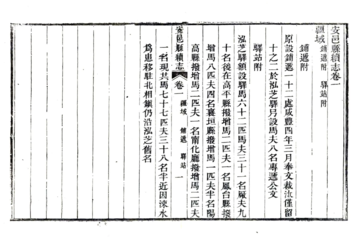 安邑縣續志卷一
疆域 鋪遞附 驛站附
鋪遞附
原設鋪遞一十二處咸豐四年三月奉文裁汰僅留
十之二於泓芝驛另設馬夫八名專遞公文
驛站附
泓芝驛額設馬六十二匹馬夫三十一名
夫九
十名後在高平縣撥增馬八匹夫四名鳳台縣撥
增馬八匹夫四名襄垣縣撥增馬一匹夫半名陽
安邑縣續志 卷一 疆域 鋪遞 驛站 一
高縣撥增馬二匹夫一名南化廳撥增馬二匹夫
一名現共馬七十七匹夫三十八名半近因涑水
為患移駐北相鎮仍沿泓芝舊名